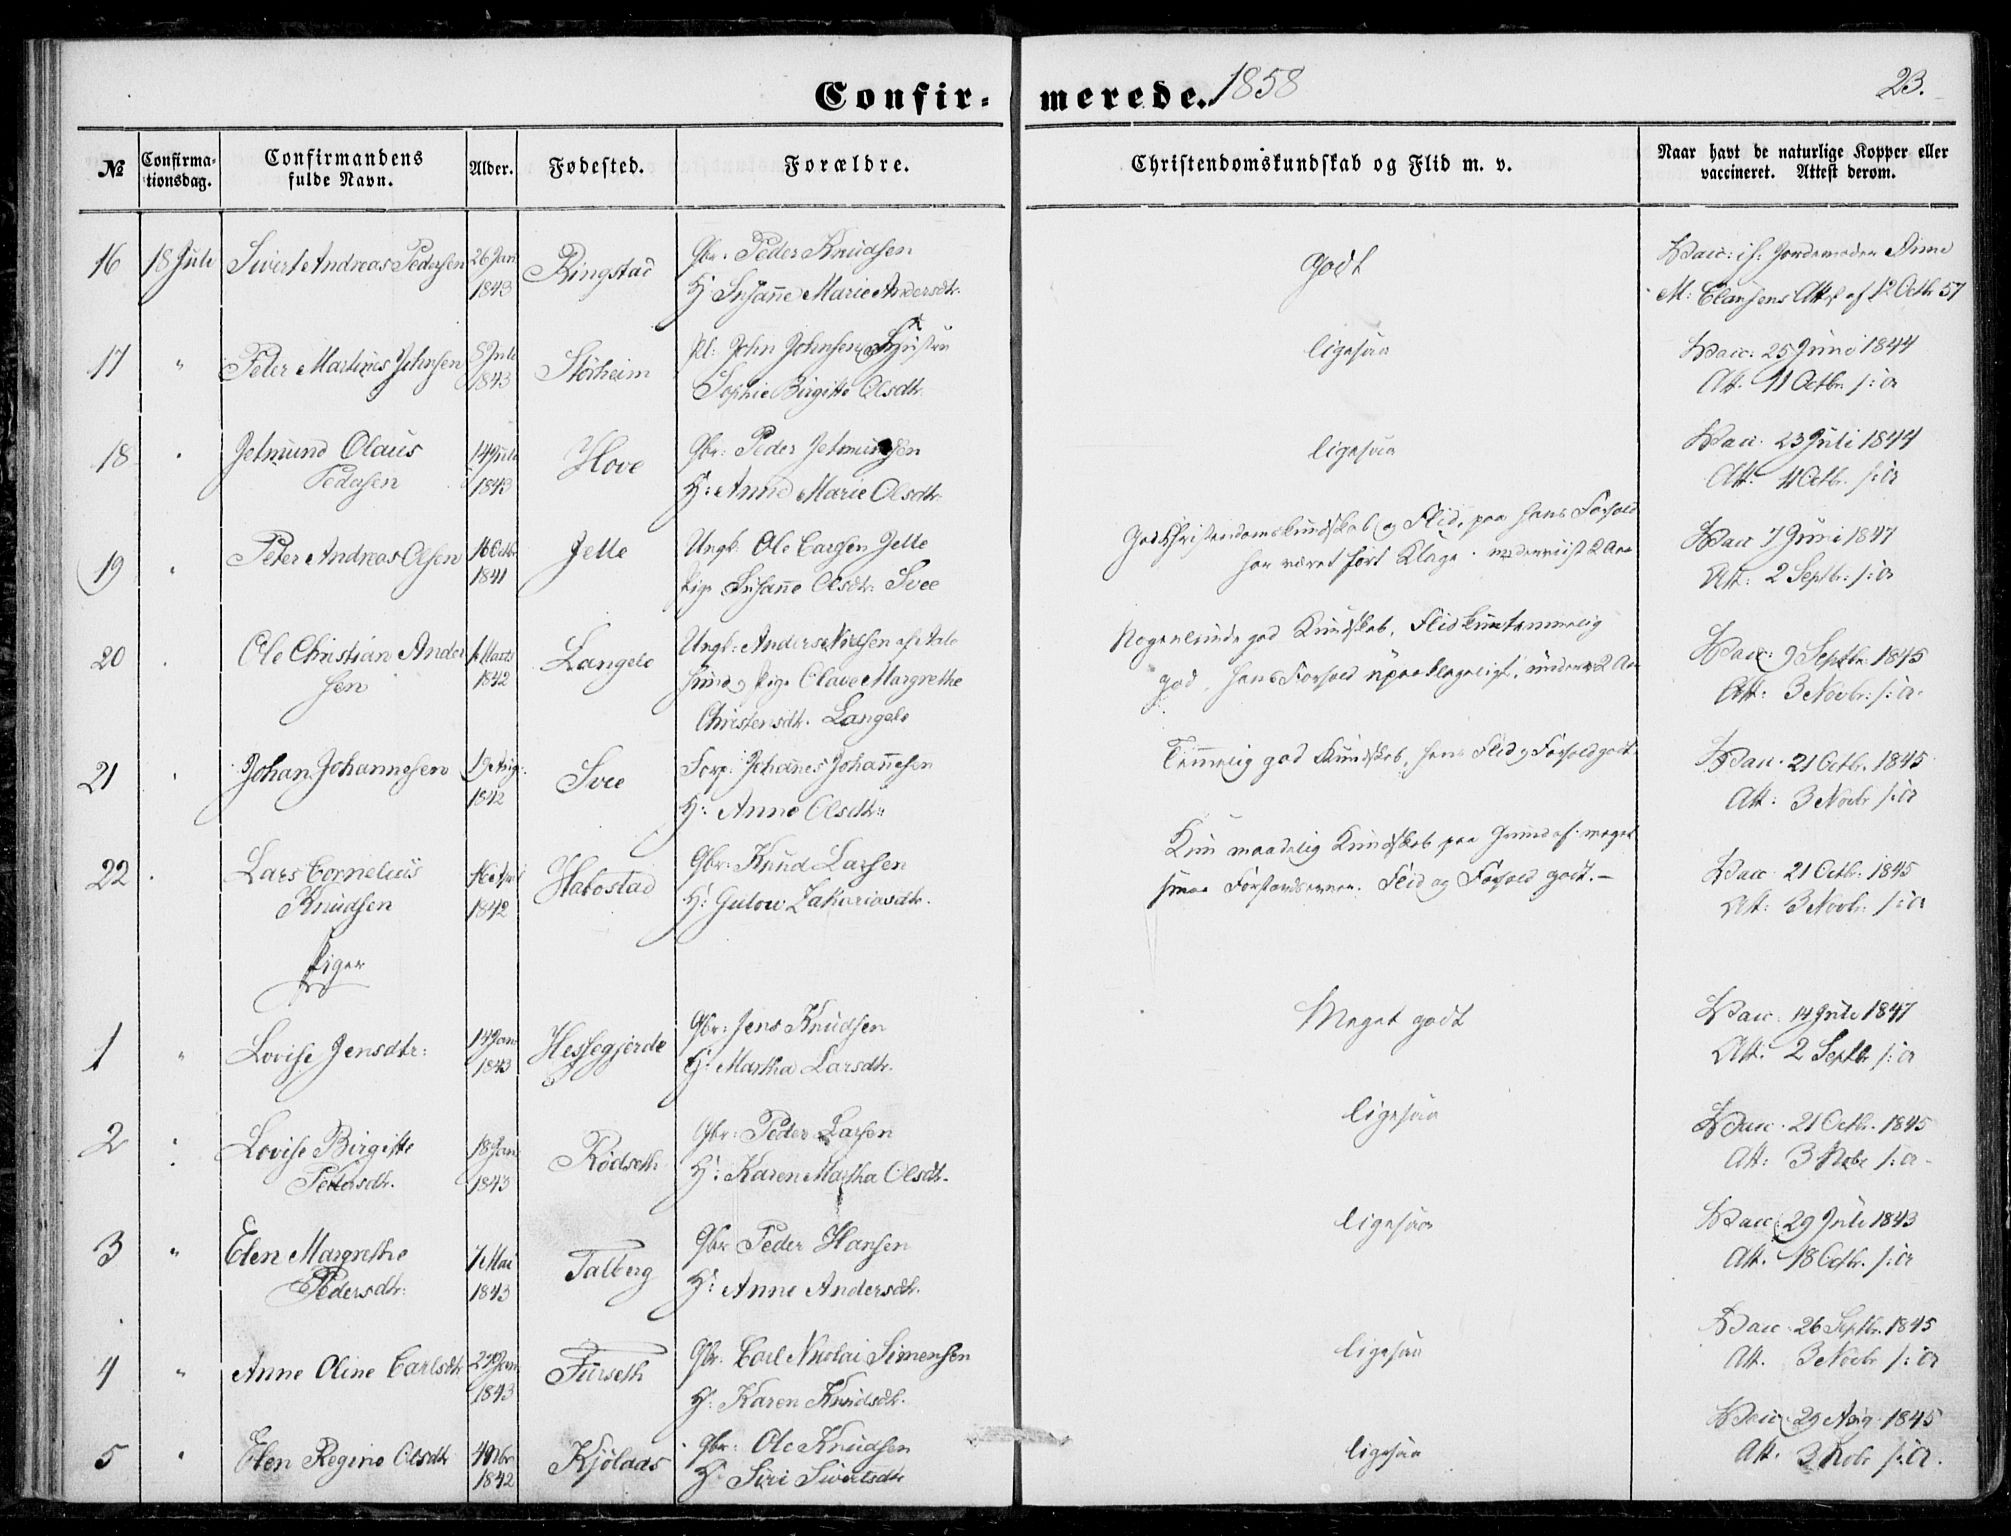 Confir- merede. 1858
23.
№ Confirma-tionsdag. Confirmandens fulde Navn. Alder. Fødested. Forældre. Christendomskundskab og Flid m. v. Naar havt de naturlige Kopper eller vaccineret. Attest derom.
16 18 Juli Sivert Andreas Pedersen 26 Jan Ringstad Gbr. Peder Knudsen Godt Vacc: if: Jordemoder Anne
1843 H: Susanne Marie Andersdtr. M: Clausens Att. af 12 Octbr 57
17 " Peter Martinus Johnsen 5 Juli Störheim Pl: John Johnsen Hustru ligesaa Vacc: 25 Juni 1844
1843 Sophie Birgitte Olsdtr. Att. 11 Octbr. s: a
18 " Jetmund Olaus 14 Juli Hove Gbr: Peder Jetmundsen ligesaa Vacc. 23 Juli 1844
Pedersen 1843 H: Anne Marie Olsdtr Att. 11 Octbr. s: a
19 " Peter Andreas Olsen 16 Octbr Jelle Ungk. Ole Larsen Jelle God Christendomskundskab og Flid, paa hans Forhold Vacc 7 Juni 1847
1841 Pige Susanne Olsdtr. Svee har været ført Klage. underviist 2 Aar Att: 2 Septbr. s: a
20 " Ole Christian Ander 1 Marts Langelo Ungk: Anders Nielsen af Aale Nogenlunde god Kundskab, Flid temmelig Vacc: 9 Septbr. 1845
sen 1842 sund og Pige Olave Margrethe god, hans Forhold upaaklageligt, underv. 2 Aar Att: 3 Novbr: s: a
Christensdtr. Langelo
21 " Johan Johannesen 19 Aug. Svee Forp: Johanes Johanesen Temmelig god Kundskab, hans Flid og Forhold godt Vacc. 21 Octbr. 1845
1842 H: Anne Olsdtr: Att: 3 Novbr s: a
22 " Lars Cornelius 16 April Habostad Gbr: Knud Larsen Kun maadelig Kundskab paa Grund af meget Vacc. 21 Octbr. 1845
Knudsen 1842 H: Gulow Zakariasdtr. smaa Forstandsevner. Flid og Forhold godt.— Att: 3 Novbr. s: a
Piger
1 " Lovise Jensdtr: 14 Jan Hessegjerde Gbr: Jens Knudsen Meget godt Vacc. 14 Juli 1847
1843 H: Martha Larsdtr. Att. 2 Septbr s: a
2 " Lovise Birgitte 18 Jan Rödseth Gbr: Peder Larsen ligesaa Vacc. 21 Octbr. 1845
Pedersdtr. 1843 H: Karen Martha Olsdtr. Att: 3 Nobr s: a
3 " Elen Margrethe 7 Mai Talberg Gbr Peder Hansen ligesaa Vacc: 29 Juli 1843
Pedersdtr: 1843 H: Anne Andersdtr. Att. 18 Octbr. s: a
4 " Anne Oline Carlsdtr 29 Jan Furseth Gbr. Carl Nicolai Simensen ligesaa Vacc. 26 Septbr. 1845
1843 H: Karen Knudsdtr. Att. 3 Novbr s: a
5 " Elen Regine Olsdtr 4 Nbr Kjölaas Gbr: Ole Knudsen ligesaa Vacc: 29 Aug. 1845
1842 H: Siri Sivertsdtr Att. 3 Nobr s: a.